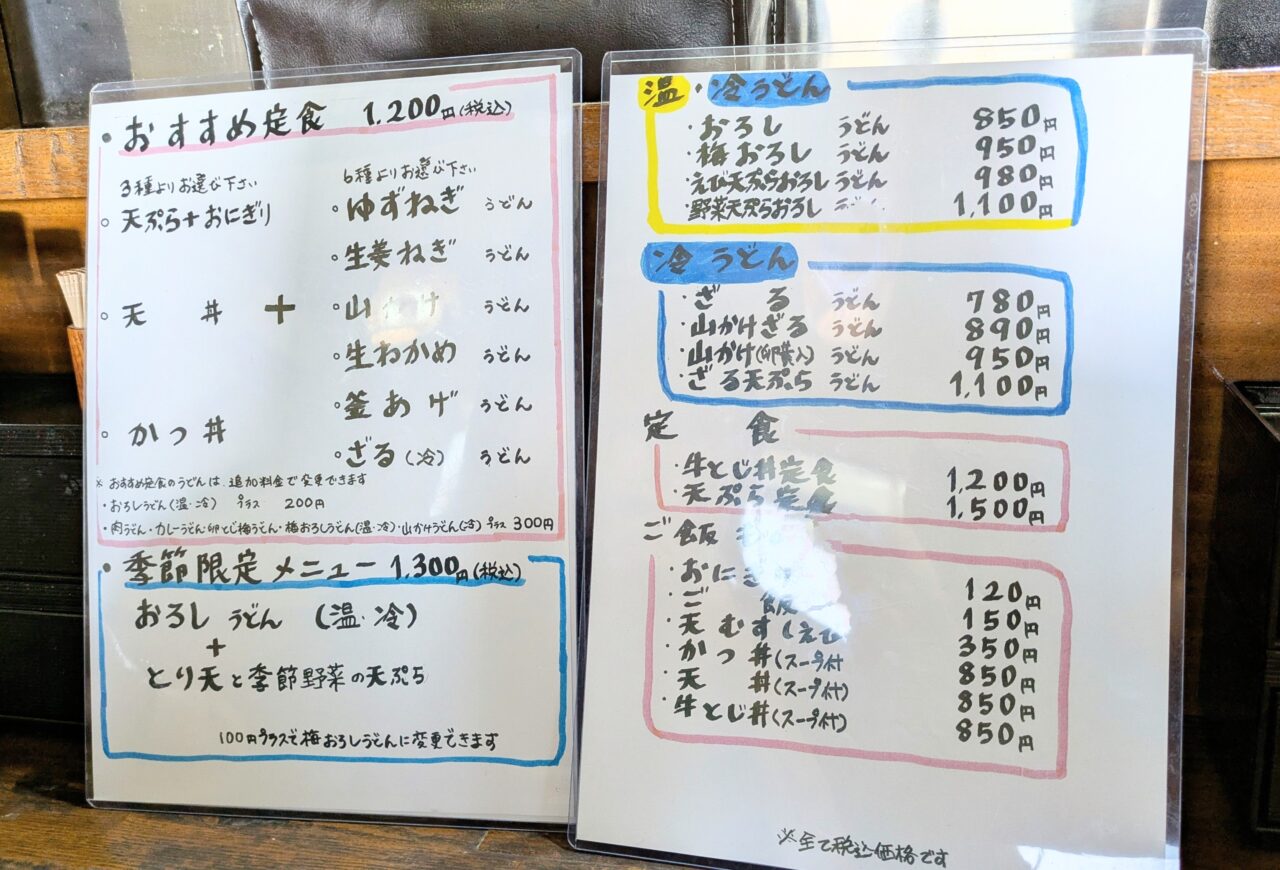 ・おすすめ定食 1,200円(税込)
3種よりお選び下さい
6種よりお選び下さい
○天ぷら+おにぎり
○天丼
+
○かつ丼
○ゆずねぎ うどん
○生姜ねぎ うどん
○山かけ うどん
○生わかめ うどん
○釜あげ うどん
○ざる(冷) うどん
※おすすめ定食のうどんは、追加料金で変更できます
・おろしうどん(温・冷) プラス 200円
・肉うどん・カレーうどん・卵とじ梅うどん・梅おろしうどん(温・冷)・山かけうどん(冷) プラス 300円
・季節限定メニュー 1,300円(税込)
おろしうどん (温・冷)
+
とり天と季節野菜の天ぷら
100円プラスで梅おろしうどんに変更できます
温・冷うどん
・おろし うどん 850円
・梅おろし うどん 950円
・えび天ぷらおろし うどん 980円
・野菜天ぷらおろし うどん 1,100円
冷うどん
・ざる うどん 780円
・山かけざる うどん 890円
・山かけ(卵黄入) うどん 950円
・ざる天ぷら うどん 1,100円
定食
・牛とじ丼定食 1,200円
・天ぷら定食 1,500円
ご飯
・おにぎ 120円
・ご飯 150円
・天むす(えび 350円
・かつ丼(スープ付 850円
・天丼(スープ付) 850円
・牛とじ丼(スープ付) 850円
※全て税込価格です